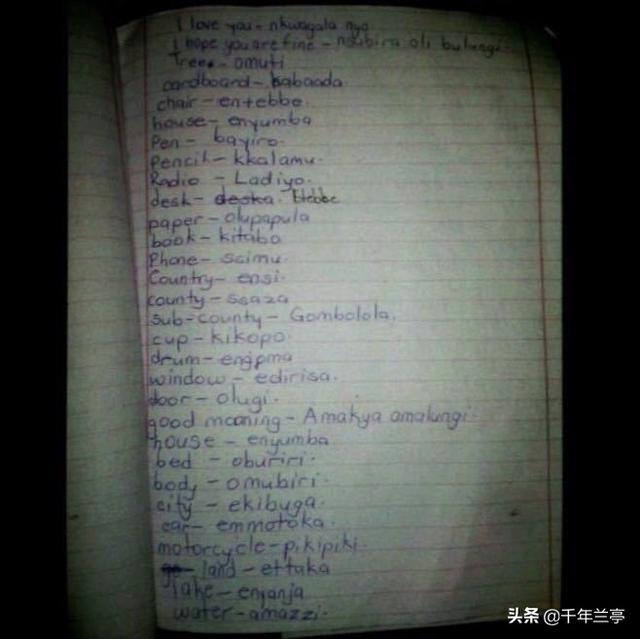 I love you - nkwagala nyo
I hope you are fine - nsubira oli bulungi.
Tree - omuti
cardboard - kabaada
chair - entebbe.
house - enyumba
Pen - bayiro.
Pencil - kkalamu.
Radio - Ladiyo.
desk - deska. Ntebbe
paper - olupapula
book - kitabo
Phone - ssimu.
Country - ensi.
county - ssaza
sub-county - Gombolola.
cup - kikopo.
drum - engoma
window - edirisa.
door - olugi.
good morning - Amakya amalungi.
house - enyumba
bed - oburiri.
body - omubiri
city - ekibuga.
car - emmotoka.
motorcycle - pikipiki.
land - ettaka
lake - enyanja
water - amazzi.
头条 @千年兰亭